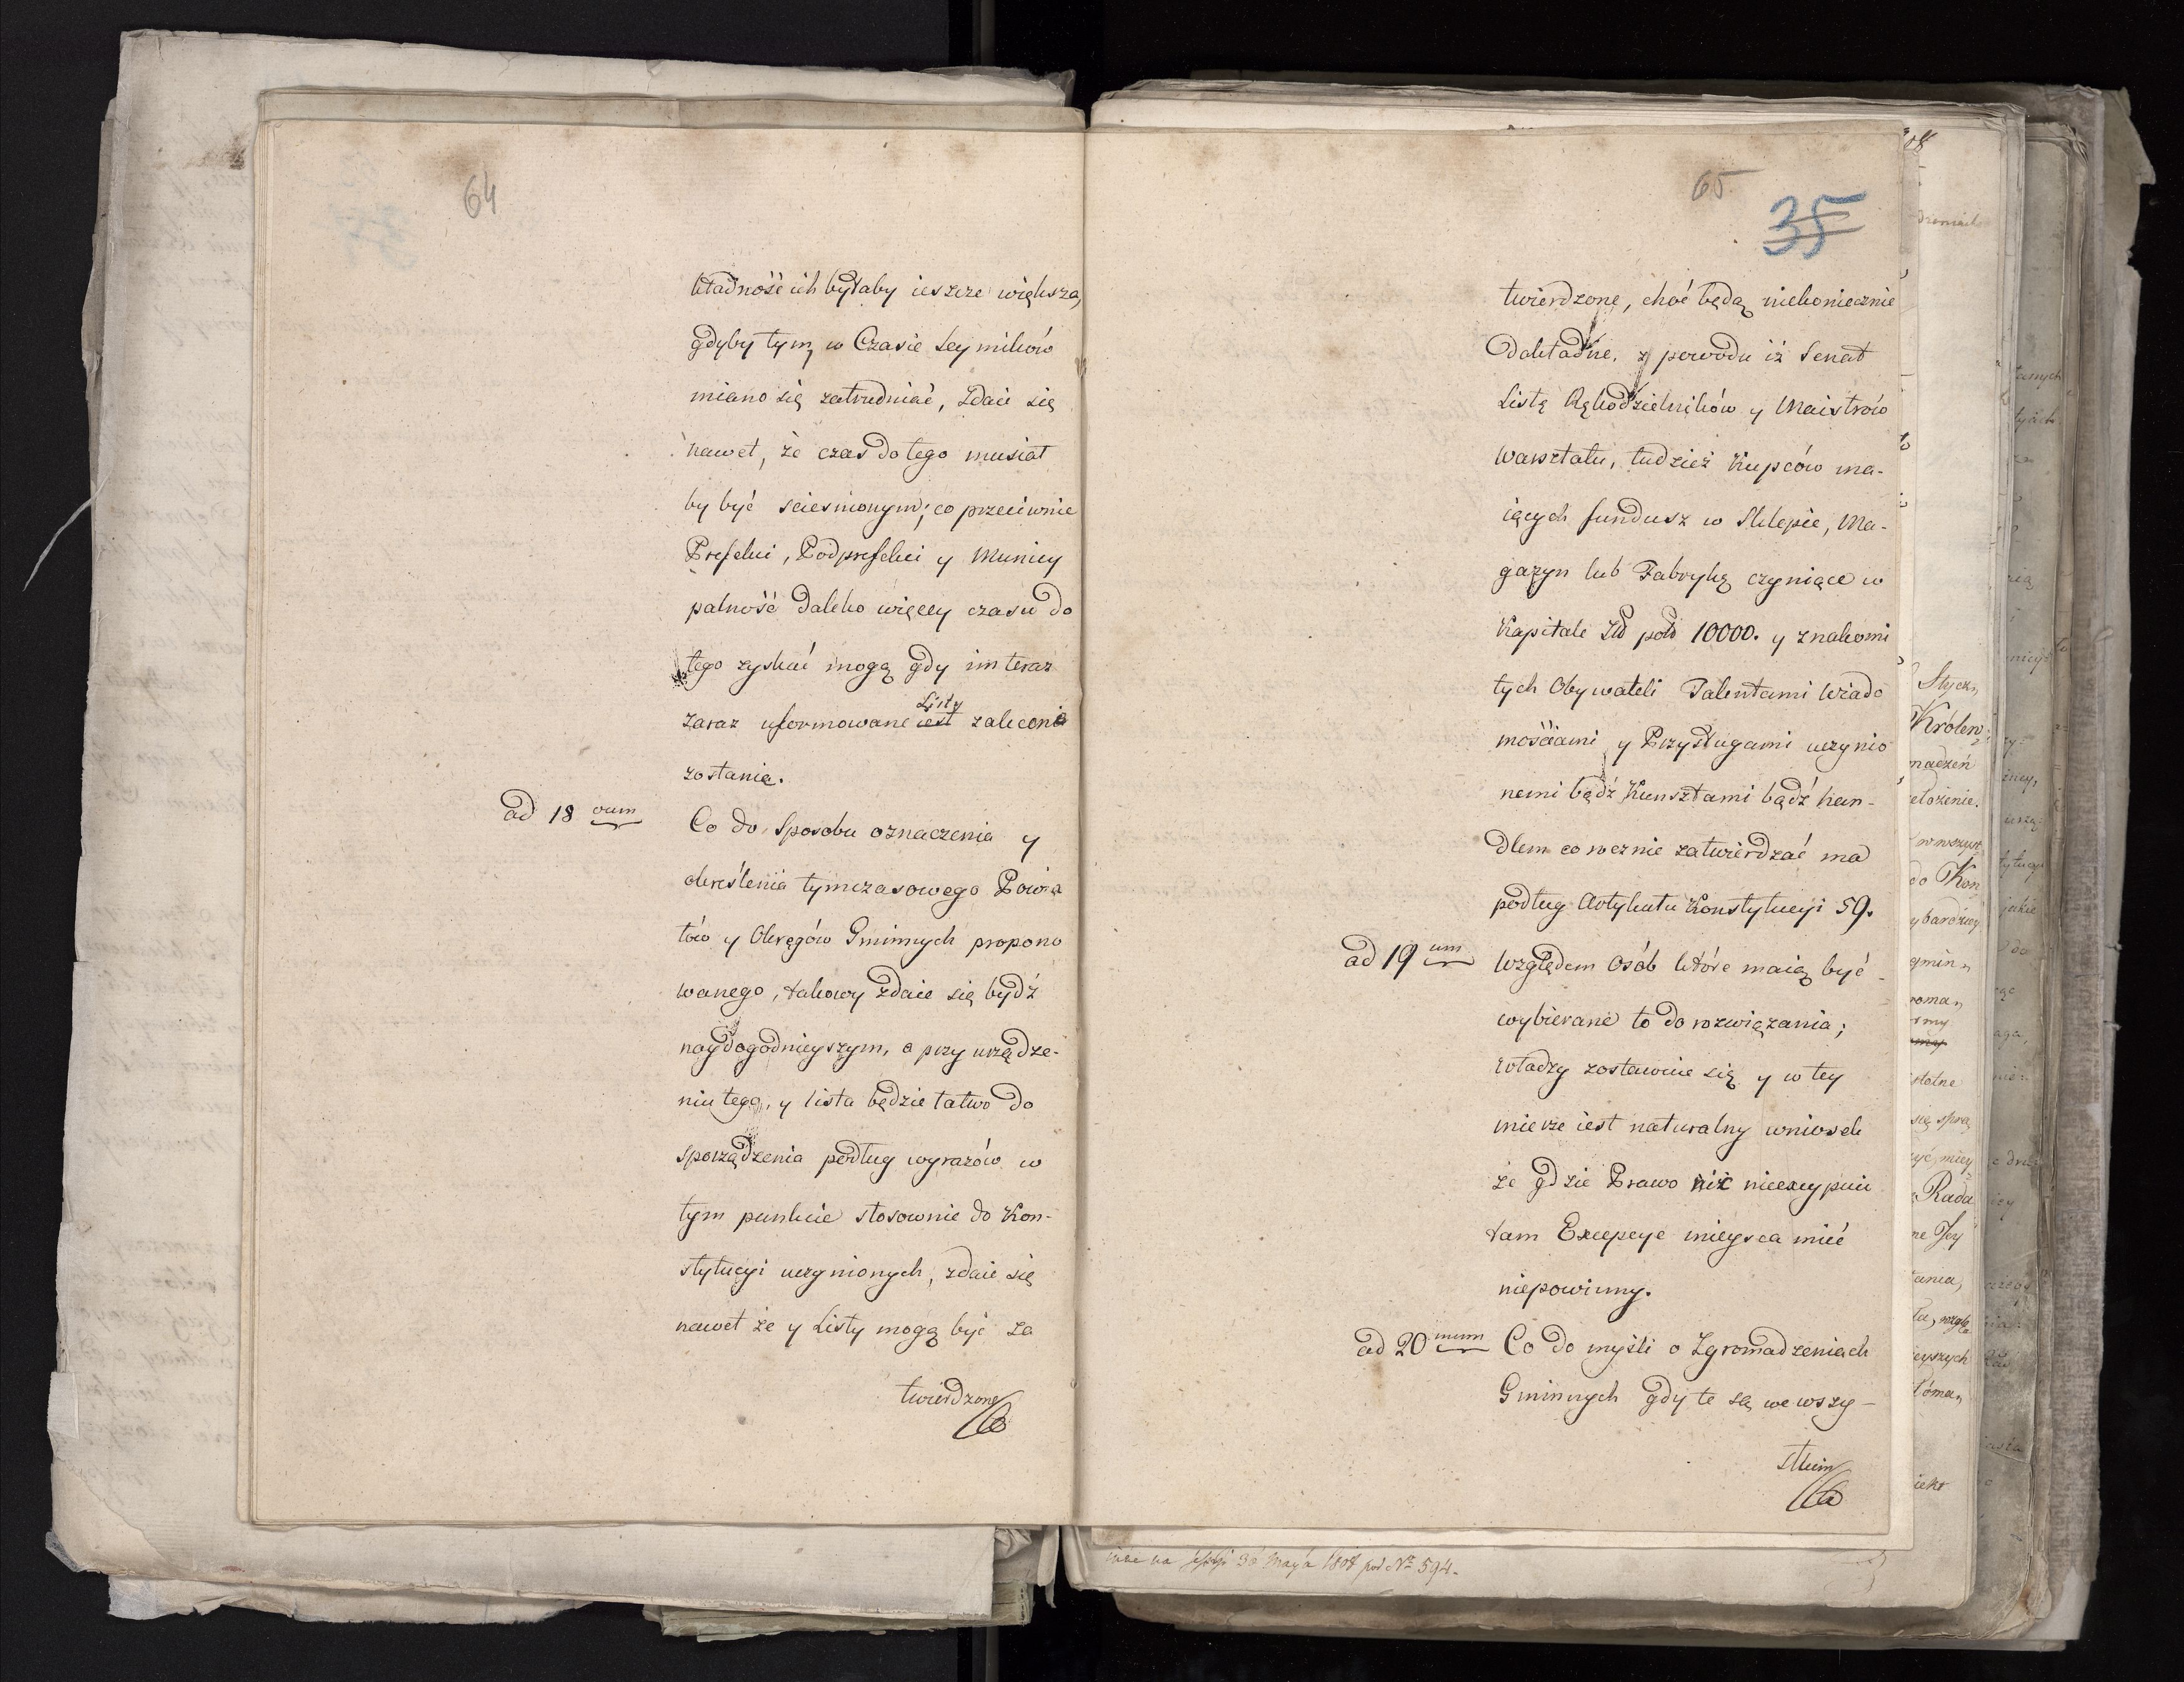 64
kładność ich byłaby ieszcze większa,
gdyby tym w Czasie Seymików
miano się zatrudniać, zdaie się
nawet, że czas do tego musiał
by być sciesnionym; co przeciwnie
Prefekci, Podprefekci y Municy
palność daleko więcey czasu do
tego zyskać mogą gdy im teraz
Listy
zaraz uformowane iest zalecone
zostanie.
ad 18 vum
Co do Sposobu oznaczenia y
okreslenia tymczasowego Powia
tów y Okręgów Gminnych propono
wanego, takowy zdaie się bydź
naydogodnieyszym, a przy urządze-
niu tego, y lista będzie łatwo do
sporządzenia podług wyrazów w
tym punkcie stosownie do Kon-
stytucyi uczynionych, zdaie się
nawet że y Listy mogą być za
twierdzone
65
35
twierdzone, choć będą niekoniecznie
Dokładne, z powodu iż Senat
Listę Rękodzielników y Maistrów
warsztatu, tudzież Kupców ma-
iących fundusz w Sklepie, Ma-
gazyn lub Fabrykę czyniące w
Kapitale Zł pol 10000. y znakomi
tych Obywateli Talentami Wiado
mościami y Przysługami uczynio
nemi bądź Kunsztami bądź han-
dlem corocznie zatwierdzać ma
podług Artykułu Konstytucyi 59.
ad 19 um
Względem Osób które maią być
wybierane to do rozwiązania;
władzy zostawuie się y w tey
mierze iest naturalny wniosek
że gdzie Prawo nic nieexcypuie
tam Excepcye mieysca mieć
niepowinny.
ad 20 mum
Co do myśli o Zgromadzeniach
Gminnych gdy te są we wszy-
stkim
na sessyi 30 Maya 1808 pod Nr 594.